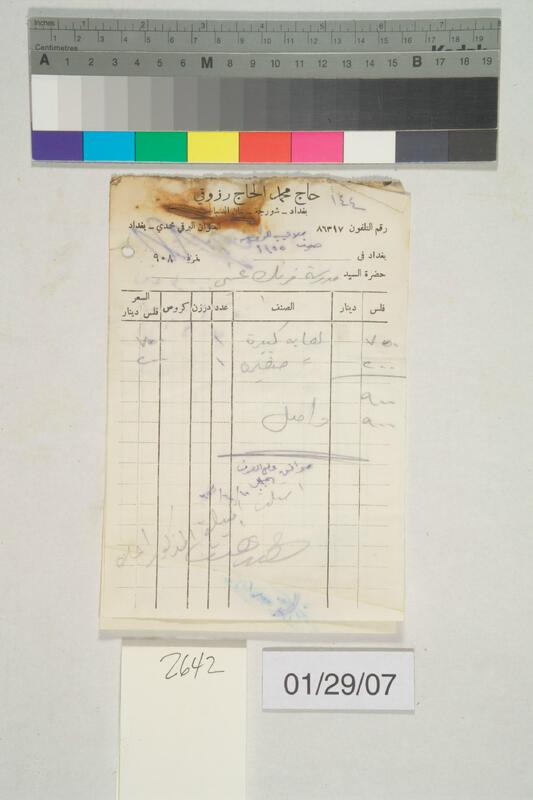 Inches 1 2 3 4 5 6 7
Centimetres 1 2 3 4 5 6 7 8 9 10 11 12 13 14 15 16 17 18 19
Kodak
A 1 2 3 4 5 6 M 8 9 10 11 12 13 14 15 B 17 18 19
حاج محمد الحاج رزوقي
١٤٤
بغداد ــ شورجه
رقم التلفون ٨٦٣١٧
العنوان البرقي مجدي ــ بغداد
بغداد في
نمرة ٩٠٨
حضرة السيد مدرسة فرنك عيني
فلس دينار الصنف عدد درزن كروص السعر
فلس دينار
٧٠٠ لهابه كبيرة ١ ٧٠٠
٢٠٠ ״ صغيره ١ ٢٠٠
٩٠٠
٩٠٠ واصل
موافق على الصرف
المذكور اعلاه
2642
01/29/07